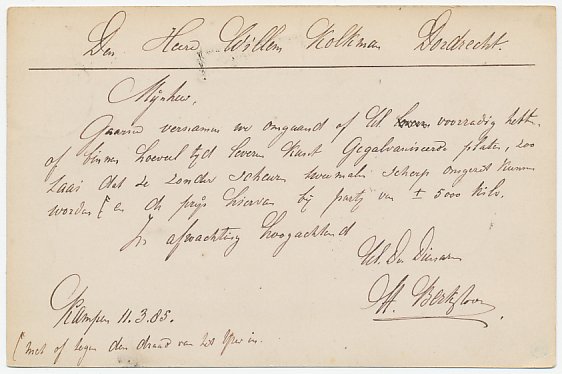 Den Heere Willem Kolkman Dordrecht.
Mijnheer,
Gaarne vernamen we omgaand of U voorradig hebt
of binnen hoeveel tijd leveren kunt Gegalvaniseerde platen, zoo
zacht dat ze zonder scheuren tweemaal scherp omgezet kunnen
worden [ en de prijs hiervan bij partij van ± 5000 Kilo.
In afwachting Hoogachtend
Ud. Dw. Dienaar
H. Berk
Kampen 11.3.85.
[ met of tegen den draad van het ijzer in.